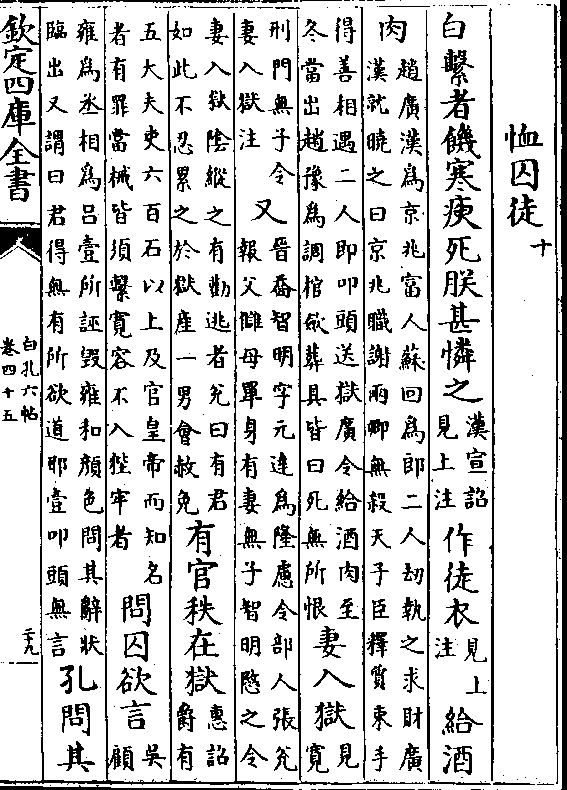 恤囚徒十
白繫者饑寒瘐死朕甚憐之漢宣詔見上注作徒衣見上注給酒
肉趙廣漢為京兆富人蘇回為郎二人劫執之求財廣
漢就曉之曰京兆職謝兩卿無殺天子臣釋質束手
得善相遇二人即叩頭送獄廣令給酒肉至
冬當出趙豫為調棺斂葬具皆曰死無所恨妻入獄見寛
刑門無子令
妻入獄注又晉喬智明字元達為隆慮令部人張兊
報父讎母單身有妻無子智明愍之令
妻入獄陰縱之有勸逃者兊曰有君
如此不忍累之於獄産一男會赦免有官秩在獄惠詔爵有
五大夫吏六百石以上及官皇帝而知名
者有罪當械皆須繫寛容不入狴牢者問囚欲言吳顧
雍為丞相為呂壹所誣毀雍和顔色問其辭狀
臨出又謂曰君得無有所欲道耶壹叩頭無言孔問其
欽定四庫全書
白孔六帖
卷四十五